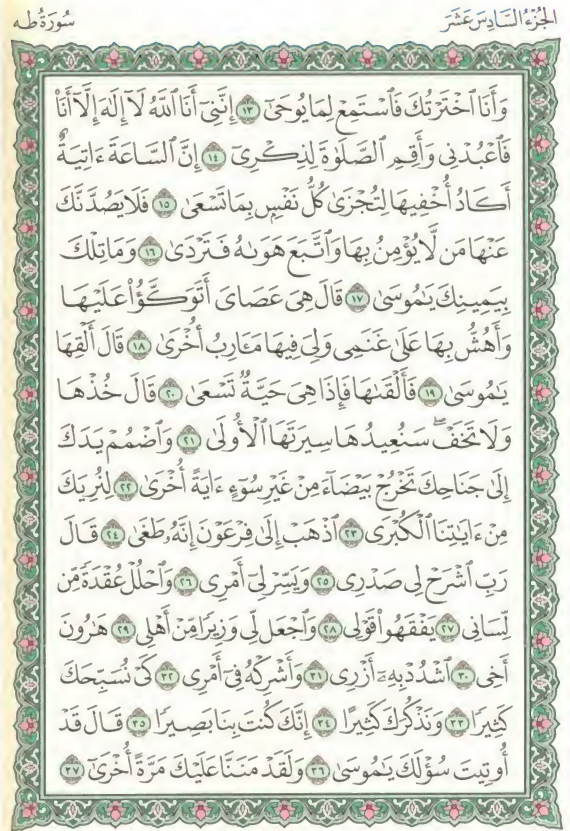 الجُزْءُ السَّادِسَ عَشَرَ
سُورَةُ طٰه
وَأَنَا ٱخْتَرْتُكَ فَٱسْتَمِعْ لِمَا يُوحَىٰٓ ١٣ إِنَّنِىٓ أَنَا ٱللَّهُ لَآ إِلَٰهَ إِلَّآ أَنَا۠
فَٱعْبُدْنِى وَأَقِمِ ٱلصَّلَوٰةَ لِذِكْرِىٓ ١٤ إِنَّ ٱلسَّاعَةَ ءَاتِيَةٌ
أَكَادُ أُخْفِيهَا لِتُجْزَىٰ كُلُّ نَفْسٍۭ بِمَا تَسْعَىٰ ١٥ فَلَا يَصُدَّنَّكَ
عَنْهَا مَن لَّا يُؤْمِنُ بِهَا وَٱتَّبَعَ هَوَىٰهُ فَتَرْدَىٰ ١٦ وَمَا تِلْكَ
بِيَمِينِكَ يَٰمُوسَىٰ ١٧ قَالَ هِىَ عَصَاىَ أَتَوَكَّؤُا۟ عَلَيْهَا
وَأَهُشُّ بِهَا عَلَىٰ غَنَمِى وَلِىَ فِيهَا مَـَٔارِبُ أُخْرَىٰ ١٨ قَالَ أَلْقِهَا
يَٰمُوسَىٰ ١٩ فَأَلْقَىٰهَا فَإِذَا هِىَ حَيَّةٌ تَسْعَىٰ ٢٠ قَالَ خُذْهَا
وَلَا تَخَفْ ۖ سَنُعِيدُهَا سِيرَتَهَا ٱلْأُولَىٰ ٢١ وَٱضْمُمْ يَدَكَ
إِلَىٰ جَنَاحِكَ تَخْرُجْ بَيْضَآءَ مِنْ غَيْرِ سُوٓءٍ ءَايَةً أُخْرَىٰ ٢٢ لِنُرِيَكَ
مِنْ ءَايَٰتِنَا ٱلْكُبْرَى ٢٣ ٱذْهَبْ إِلَىٰ فِرْعَوْنَ إِنَّهُۥ طَغَىٰ ٢٤ قَالَ
رَبِّ ٱشْرَحْ لِى صَدْرِى ٢٥ وَيَسِّرْ لِىٓ أَمْرِى ٢٦ وَٱحْلُلْ عُقْدَةً مِّن
لِّسَانِى ٢٧ يَفْقَهُوا۟ قَوْلِى ٢٨ وَٱجْعَل لِّى وَزِيرًا مِّنْ أَهْلِى ٢٩ هَٰرُونَ
أَخِى ٣٠ ٱشْدُدْ بِهِۦٓ أَزْرِى ٣١ وَأَشْرِكْهُ فِىٓ أَمْرِى ٣٢ كَىْ نُسَبِّحَكَ
كَثِيرًا ٣٣ وَنَذْكُرَكَ كَثِيرًا ٣٤ إِنَّكَ كُنتَ بِنَا بَصِيرًا ٣٥ قَالَ قَدْ
أُوتِيتَ سُؤْلَكَ يَٰمُوسَىٰ ٣٦ وَلَقَدْ مَنَنَّا عَلَيْكَ مَرَّةً أُخْرَىٰٓ ٣٧